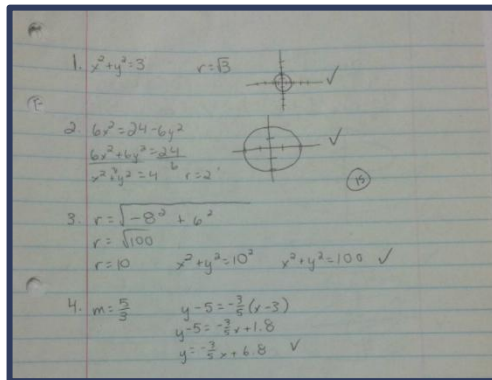 1. x²+y²=3 r=√3 ✓
2. 6x²=24-6y²
6x²+6y²=24
6
x²+y²=4 r=2 ✓
15
3. r=√-8² + 6²
r=√100
r=10 x²+y²=10² x²+y²=100 ✓
4. m=5/3 y-5=-3/5(x-3)
y-5=-3/5x+1.8
y=-3/5x+6.8 ✓